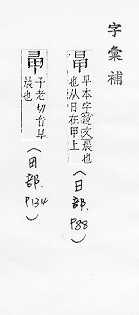 字彙補
𣅔 早本字說文晨也
也从日在甲上
(日部.
P88)
子老切音早
(田部.
P134)